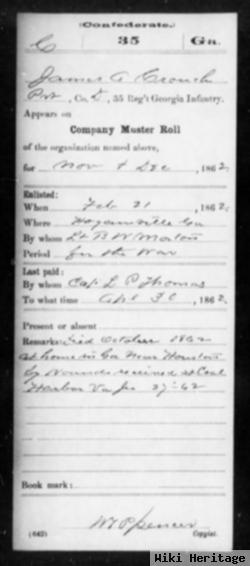 (Confederate.)
C 35 Ga.
James A Crouch
Pvt, Co. , 35 Reg't Georgia Infantry.
Appears on
Company Muster Roll
of the organization named above,
for Nov & Dec, 1862.
Enlisted:
When Feb 21, 1862.
Where Hogansville Ga
By whom Lt B W Morton
Period for the War
Last paid:
By whom Capt L P Thomas
To what time Apl 30, 1862.
Present or absent
Remarks: Died October 1862
at home in Ga Near Houston
by Wounds received at Coal
Harbor Va Je 27-62
Book mark:
W P Spencer
(642) Copyist.
Wiki Heritage